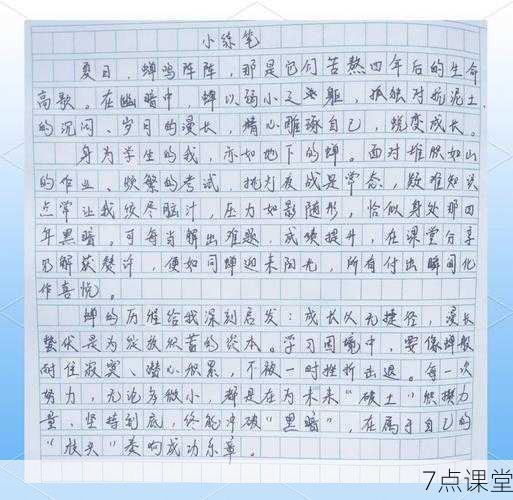 小练笔
夏日，蝉鸣阵阵，那是它们苦熬四年后的生命
高歌。在幽暗中，蝉以弱小之躯，孤独对抗泥土
的沉闷、岁月的漫长，精心雕琢自己，蜕变成长。
身为学生的我，亦如地下的蝉。面对堆积如山
的作业、频繁的考试，挑灯夜战是常态，疑难知识
点常让我绞尽脑汁，压力如影随形，恰似身处那四
年黑暗。可每当解出难题，成绩提升，在课堂分享
见解获赞许，便如同蝉迎来阳光，所有付出瞬间化
作喜悦。
蝉的历程给我深刻启发：成长从无捷径，漫长
蛰伏是为绽放积蓄的资本。学习困境中，要像蝉般
耐住寂寞、潜心积累，不被一时挫折击退。每一次
努力，无论多微小，都是在为未来“破土”积攒力
量，坚持到底，终能冲破“黑暗”，在属于自己的
“枝头”奏响成功乐章。
7点课堂